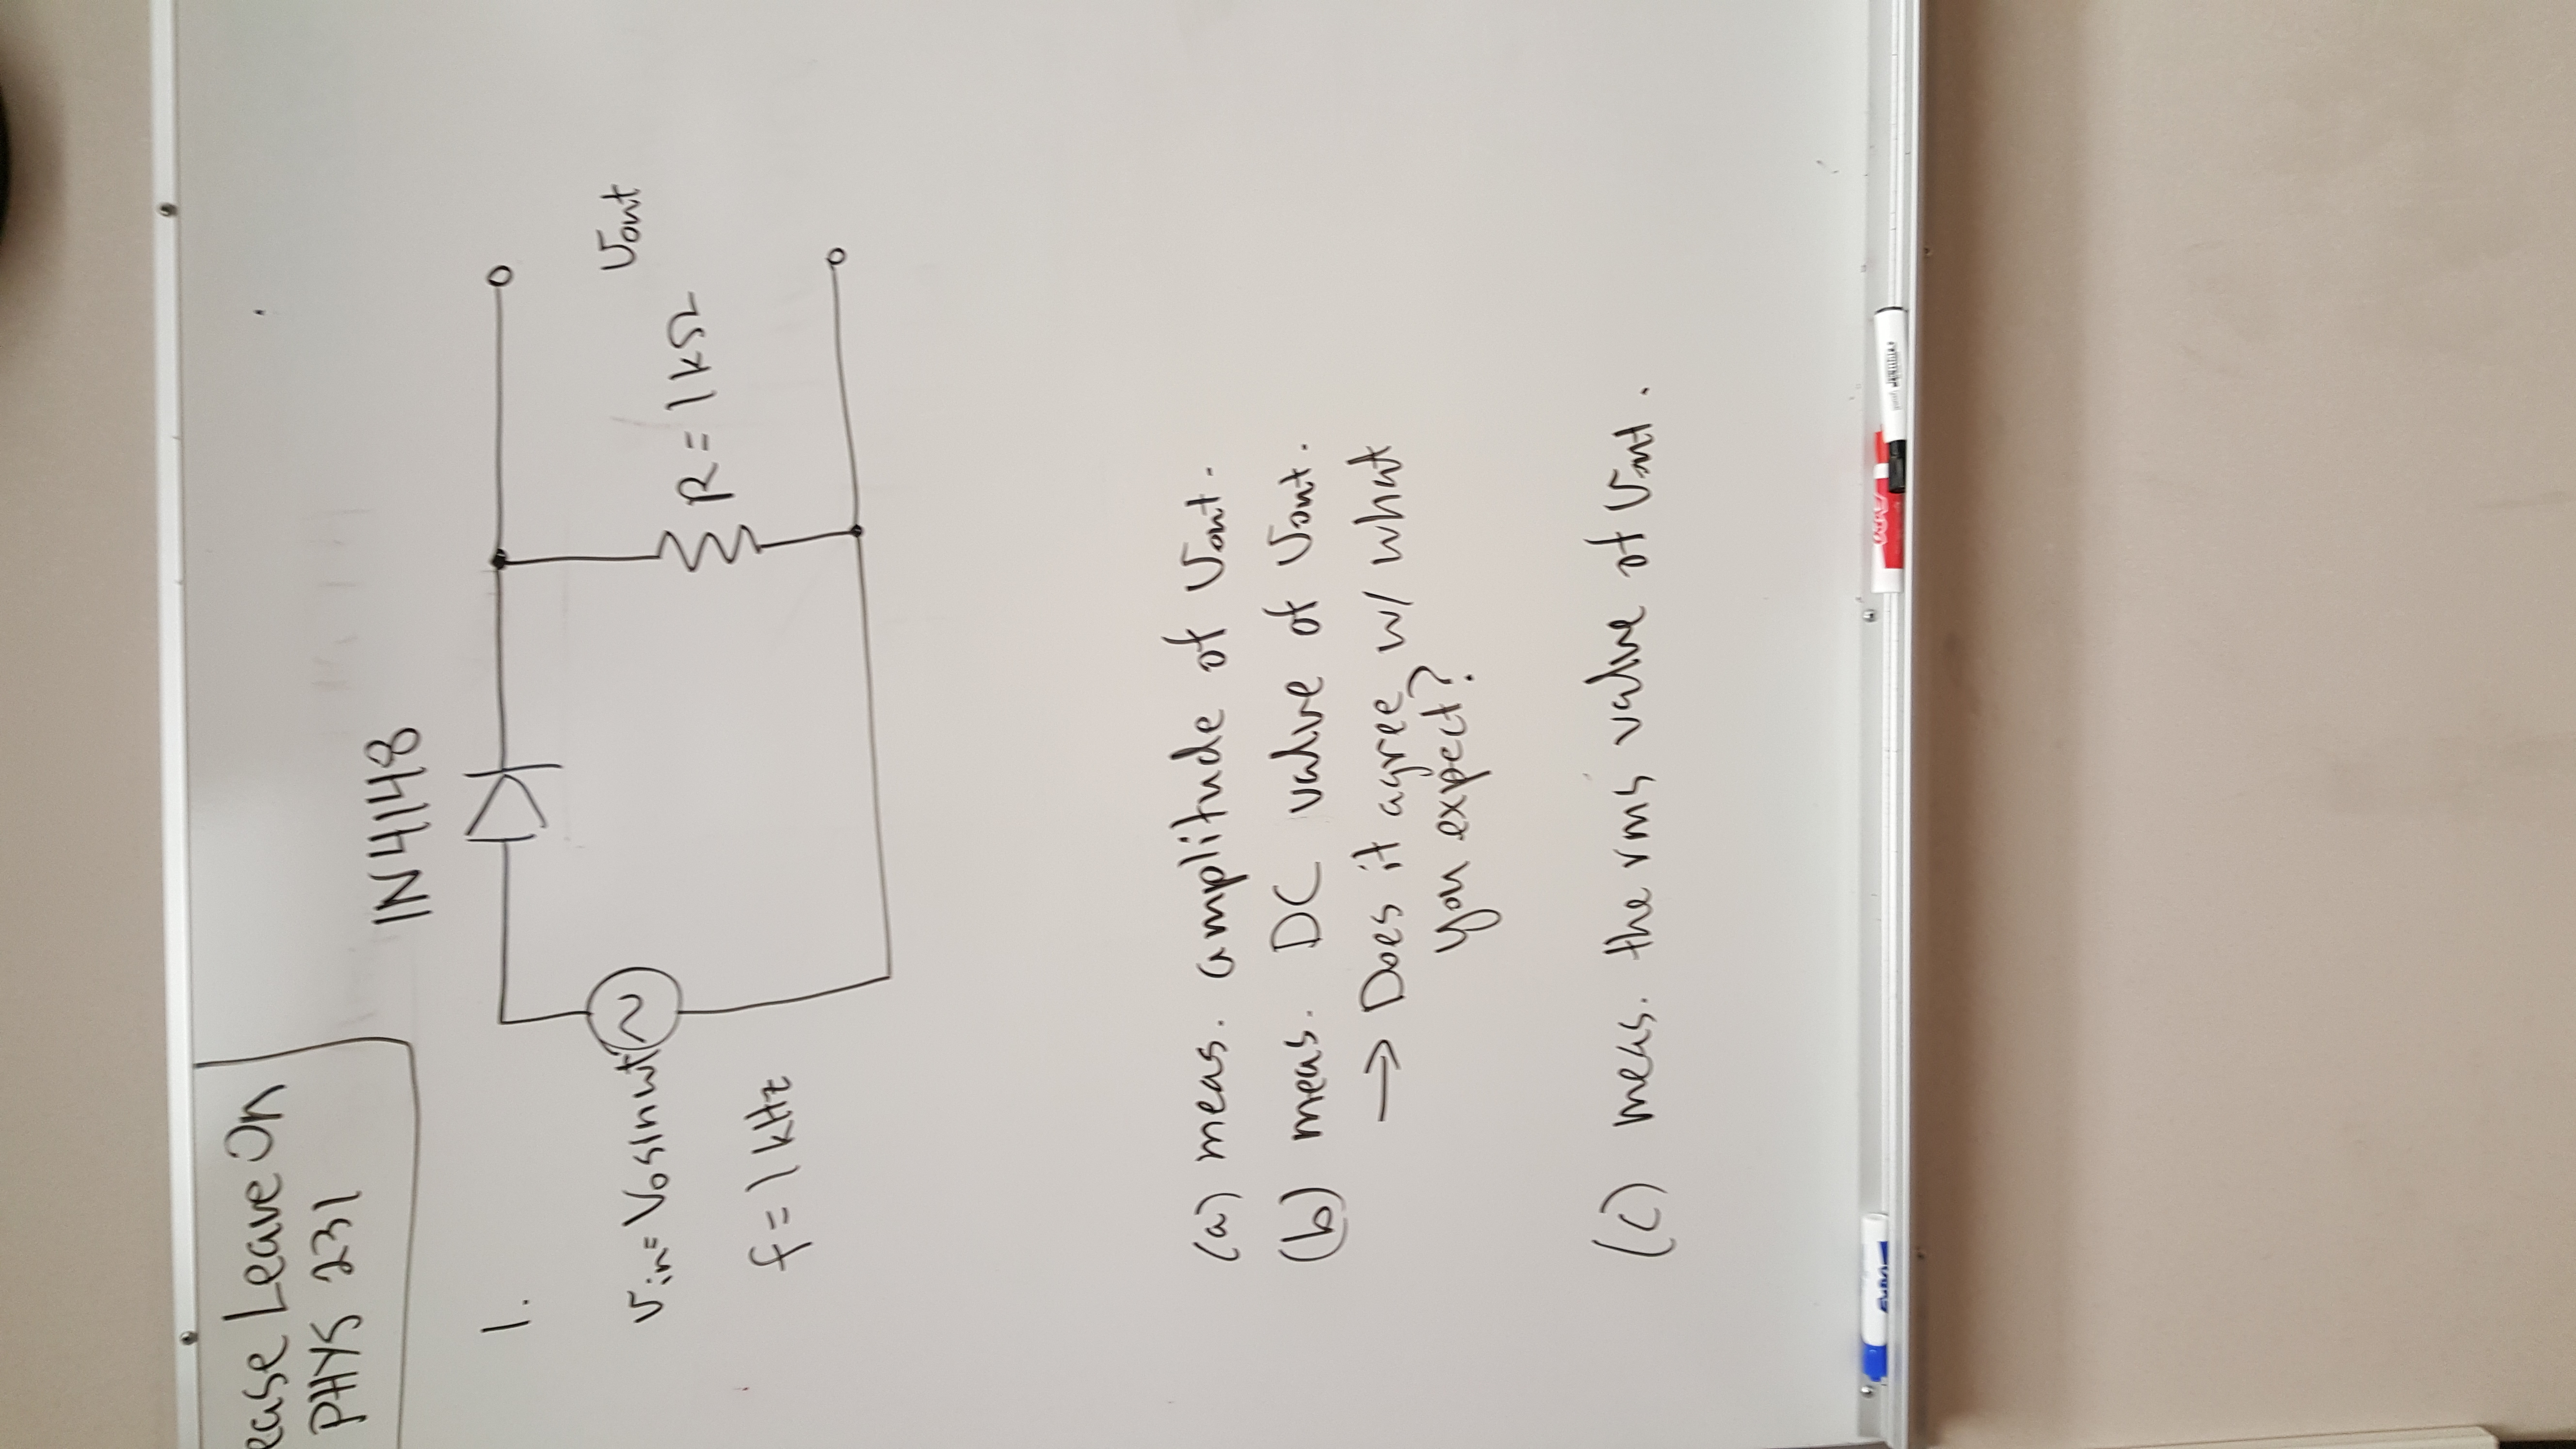 ease Leave On
PHYS 231
1N4148
1.
Vin= Vosinωt
f=1kHz
Vout
R=1kΩ
(a) meas. amplitude of Vout.
(b) meas. DC value of Vout.
→ Does it agree w/ what
you expect?
(c) meas. the rms value of Vout.
EXPO